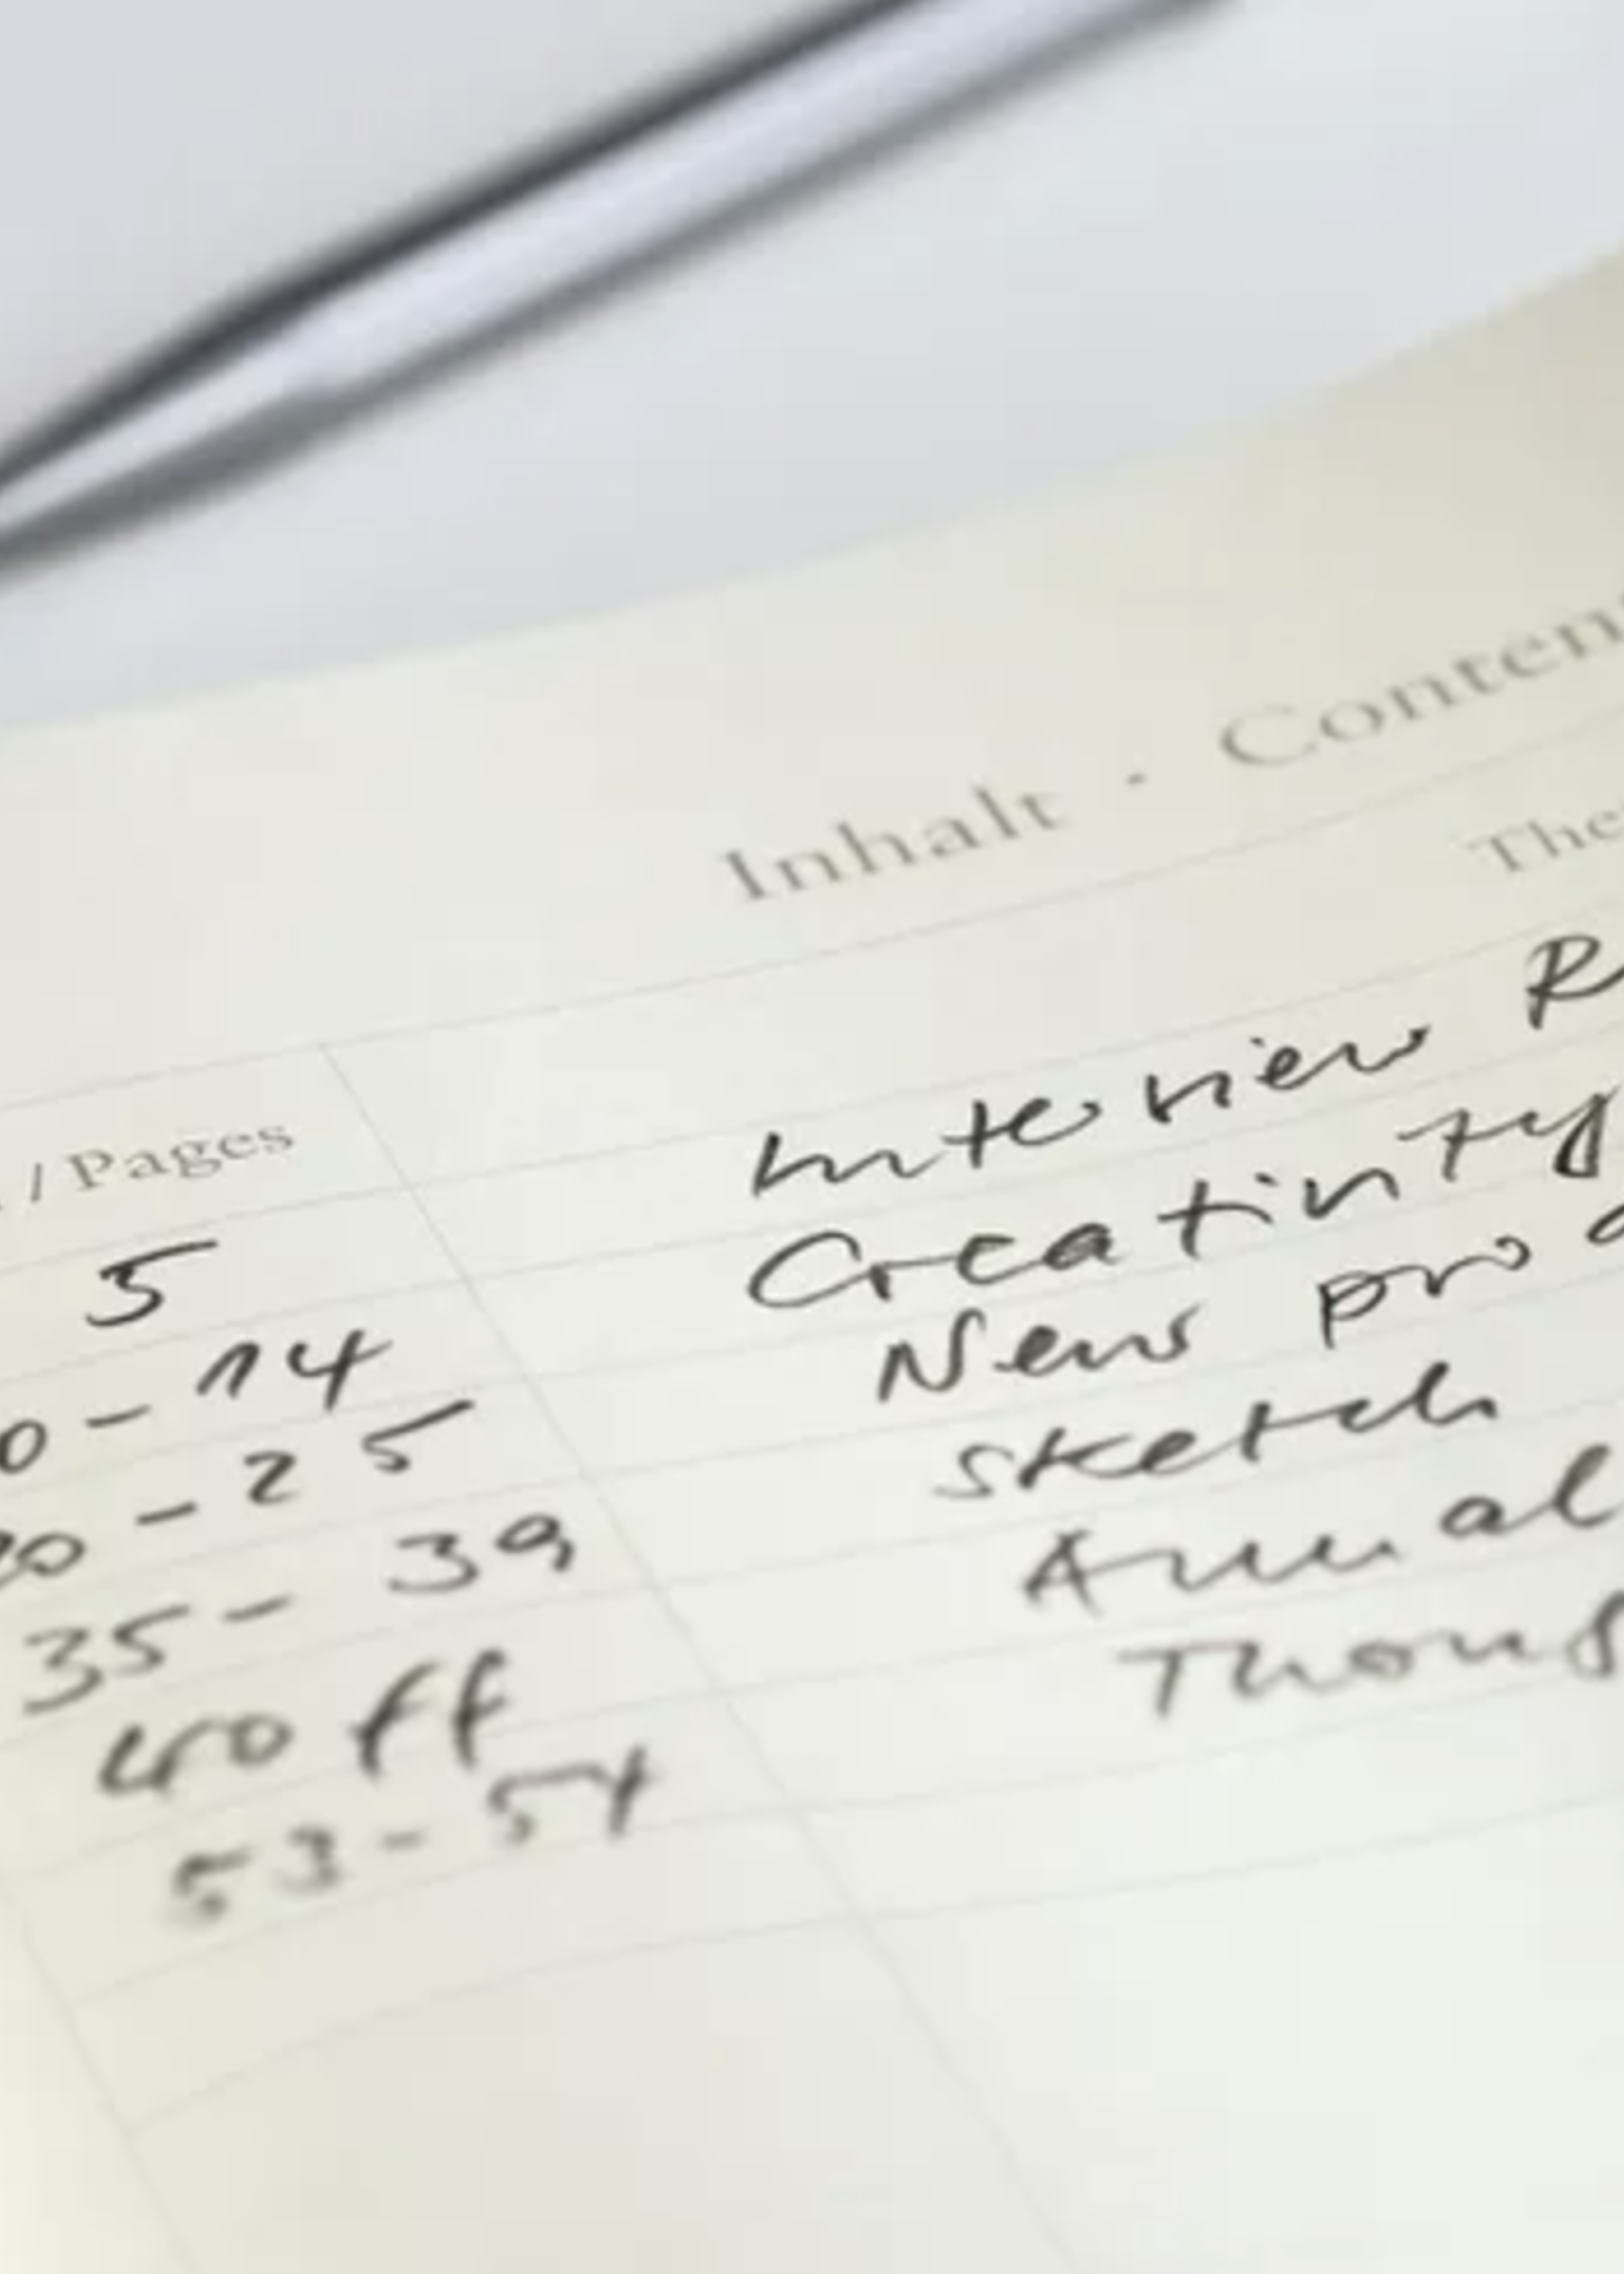 Inhalt · Conten
The
/ Pages
5 Interview R
0 - 14 Creativity
20 - 25 New pro
35 - 39 Sketch
40 ff Annual
53 - 54 Thoug